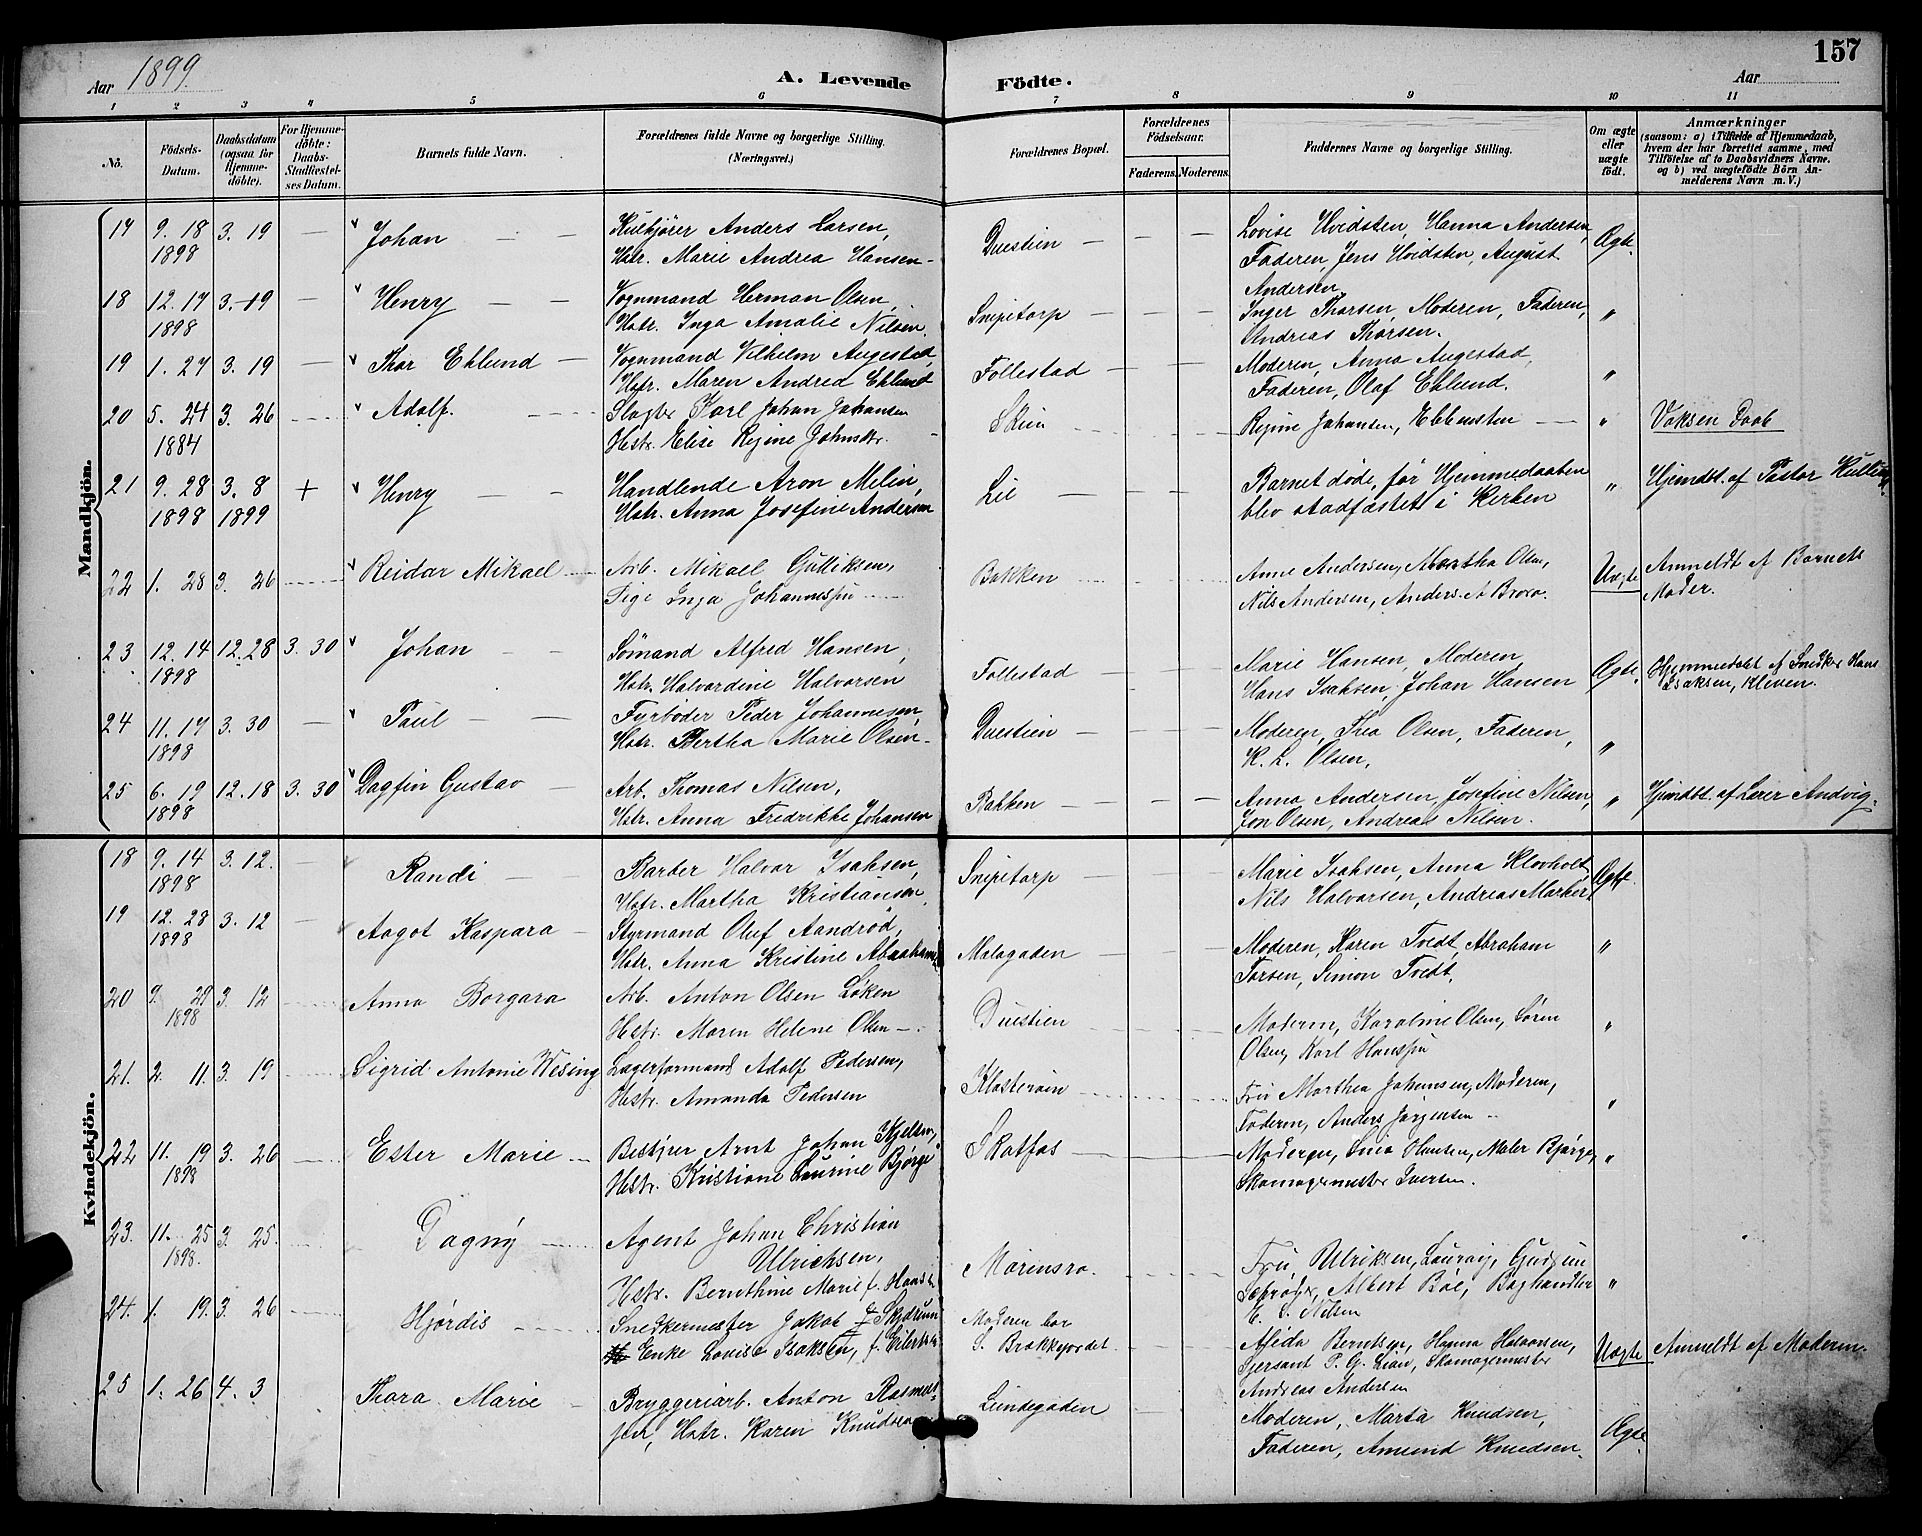 157
Aar 1899.
A. Levende Födte.
Aar
1 2 3 4 5 6 7 8 9 10 11
No.
Födsels-Datum.
Daabsdatum (ogsaa for Hjemmedöbte).
For Hjemmedöbte: Daabs-Stadfestelses Datum.
Barnets fulde Navn.
Forældrenes fulde Navne og borgerlige Stilling. (Næringsvei.)
Forældrenes Bopæl.
Forældrenes Födselsaar.
Faderens. Moderens.
Faddernes Navne og borgerlige Stilling.
Om ægte eller uægte födt.
Anmærkninger
(saasom: a) i Tilfælde af Hjemmedaab, hvem der har forrettet samme, med Tilföielse af to Daabsvidners Navne. og b) ved uægtefödte Börn Anmelderens Navn m. V.)
Mandkjön.
17 9. 18 3. 19 — Johan — — Anders Larsen, Duestien — — — Lovise Hvidsten, Hanna Andersen, Ægte.
1898 Hstr. Marie Andrea Hansen — Faderen, Jens Hvidsten, August
Andersen
18 12. 17 3. 19 — Henry — — Vognmand Herman Olsen, Snipetorp — — — Inger Thorsen, Moderen, Faderen, "
1898 Hstr. Inga Amalie Nilsen Andreas Thorsen.
19 1. 27 3. 19 — Thor Eklund — Vognmand Vilhelm Augestad, Follestad — — — Moderen, Anna Augestad, "
Hstr. Maren Andrea Eklund Faderen, Olaf Eklund.
20 5. 24 3. 26 Adolf. Slagter Karl Johan Johansen Skien Regine Johansen, Ebbensten — " Voksen Daab
1884 Hstr. Elise Regine Johnsdtr.
21 9. 28 3. 8 + Henry — — Handlende Aron Melin, Lie — — — Barnet døde, før Hjemmedaaben " Hjemdbt. af Pastor
1898 1899 Hstr. Anna Josefine Andersen blev stadfæstet i Kirken
22 1. 28 3. 26 Reidar Mikael Arb. Mikael Gulliksen, Bakken Anne Andersen, Martha Olsen, Uægte Anmeldt af Barnets
Pige Inga Johannesen Nils Andersen, Anders A. Moder.
23 12. 14 12. 28 3. 30 Johan — — Sømand Alfred Hansen, Follestad — — — Marie Hansen, Moderen, Ægte. Hjemmedøbt af Snedker Hans
1898 Hstr. Halvardine Halvorsen Hans Isaksen, Johan Hansen Isaksen, Kleven.
24 11. 17 3. 30 — Paul — — Fyrbøder Peder Johannesen, Duestien — — — Moderen, Thea Olsen, Faderen, "
1898 Hstr. Bertha Marie Olsen — K. L. Olsen,
25 6. 19 12. 18 3. 30 Dagfin Gustav — Arb. Thomas Nilsen, Bakken — — — Anna Andersen, Josefine Nilsen, " Hjemdbt. af Lærer Andvig.
1898 Hstr. Anna Fredrikke Johansen Jon Olsen, Andreas Nilsen.
Kvindekjön.
18 9. 14 3. 12. — Randi — — Barber Halvor Isaksen, Snipetorp — — — Marie Isaksen, Anna Klovholt, Ægte.
1898 Hstr. Martha Kristiansen Nils Halvorsen, Andreas
19 12. 28 3. 12 — Aagot Kaspara — Styrmand Oluf Aandrød, Malagaden — — — Moderen, Karen Tvedt, Abraham "
1898 Hstr. Anna Kristine Torsen, Simon Tvedt.
20 9. 3. 12 Anna Borgara Arb. Anton Olsen Løken Duestien Moderen, Karoline Olsen, Søren "
1898 Hstr. Maren Helene Olsen — Olsen, Karl
21. 2. 11. 3. 19 Sigrid Antonie Wesing Lagerformand Adolf Pedersen, Klosterøin Fru Marthea Johansen, Moderen, "
Hstr. Amanda Pedersen Faderen, Anders Jørgensen
22 11. 19 3. 26 Ester Marie Bestyrer Arnt Johan Kjelsen, Skotfos Moderen, Sina Hansen, Maler Bjørge, "
1898 Hstr. Kristiane Laurine Bjørge Skomagermester Iversen.
23. 11. 25 3. 25. Dagny Agent Johan Christian Marinsro. Fru Ulriksen, Gudrun "
1898. Ulrichsen, Albert Boe, Boghandler
Hstr. Bernthine Marie f. E. S. Nilsen
24. 1. 19. 3. 26 Hjørdis Snedkermester Jakob Moderen bor Alida Berntsen, Hanna Halvorsen, Uægte Anmeldt af Moderen.
Enke Lovise Isaksen, f. Eilertsen S. Brekkejordet Sjersant P. G. Lian, Skomagermester
Andreas Andersen
25 1. 26 4. 3 Thora Marie — Bryggeriarb. Anton Rasmus- Lundegaden Moderen, Marta Knudsen, Ægte.
sen, Hstr. Karen Knudsen Faderen, Amund Knudsen.